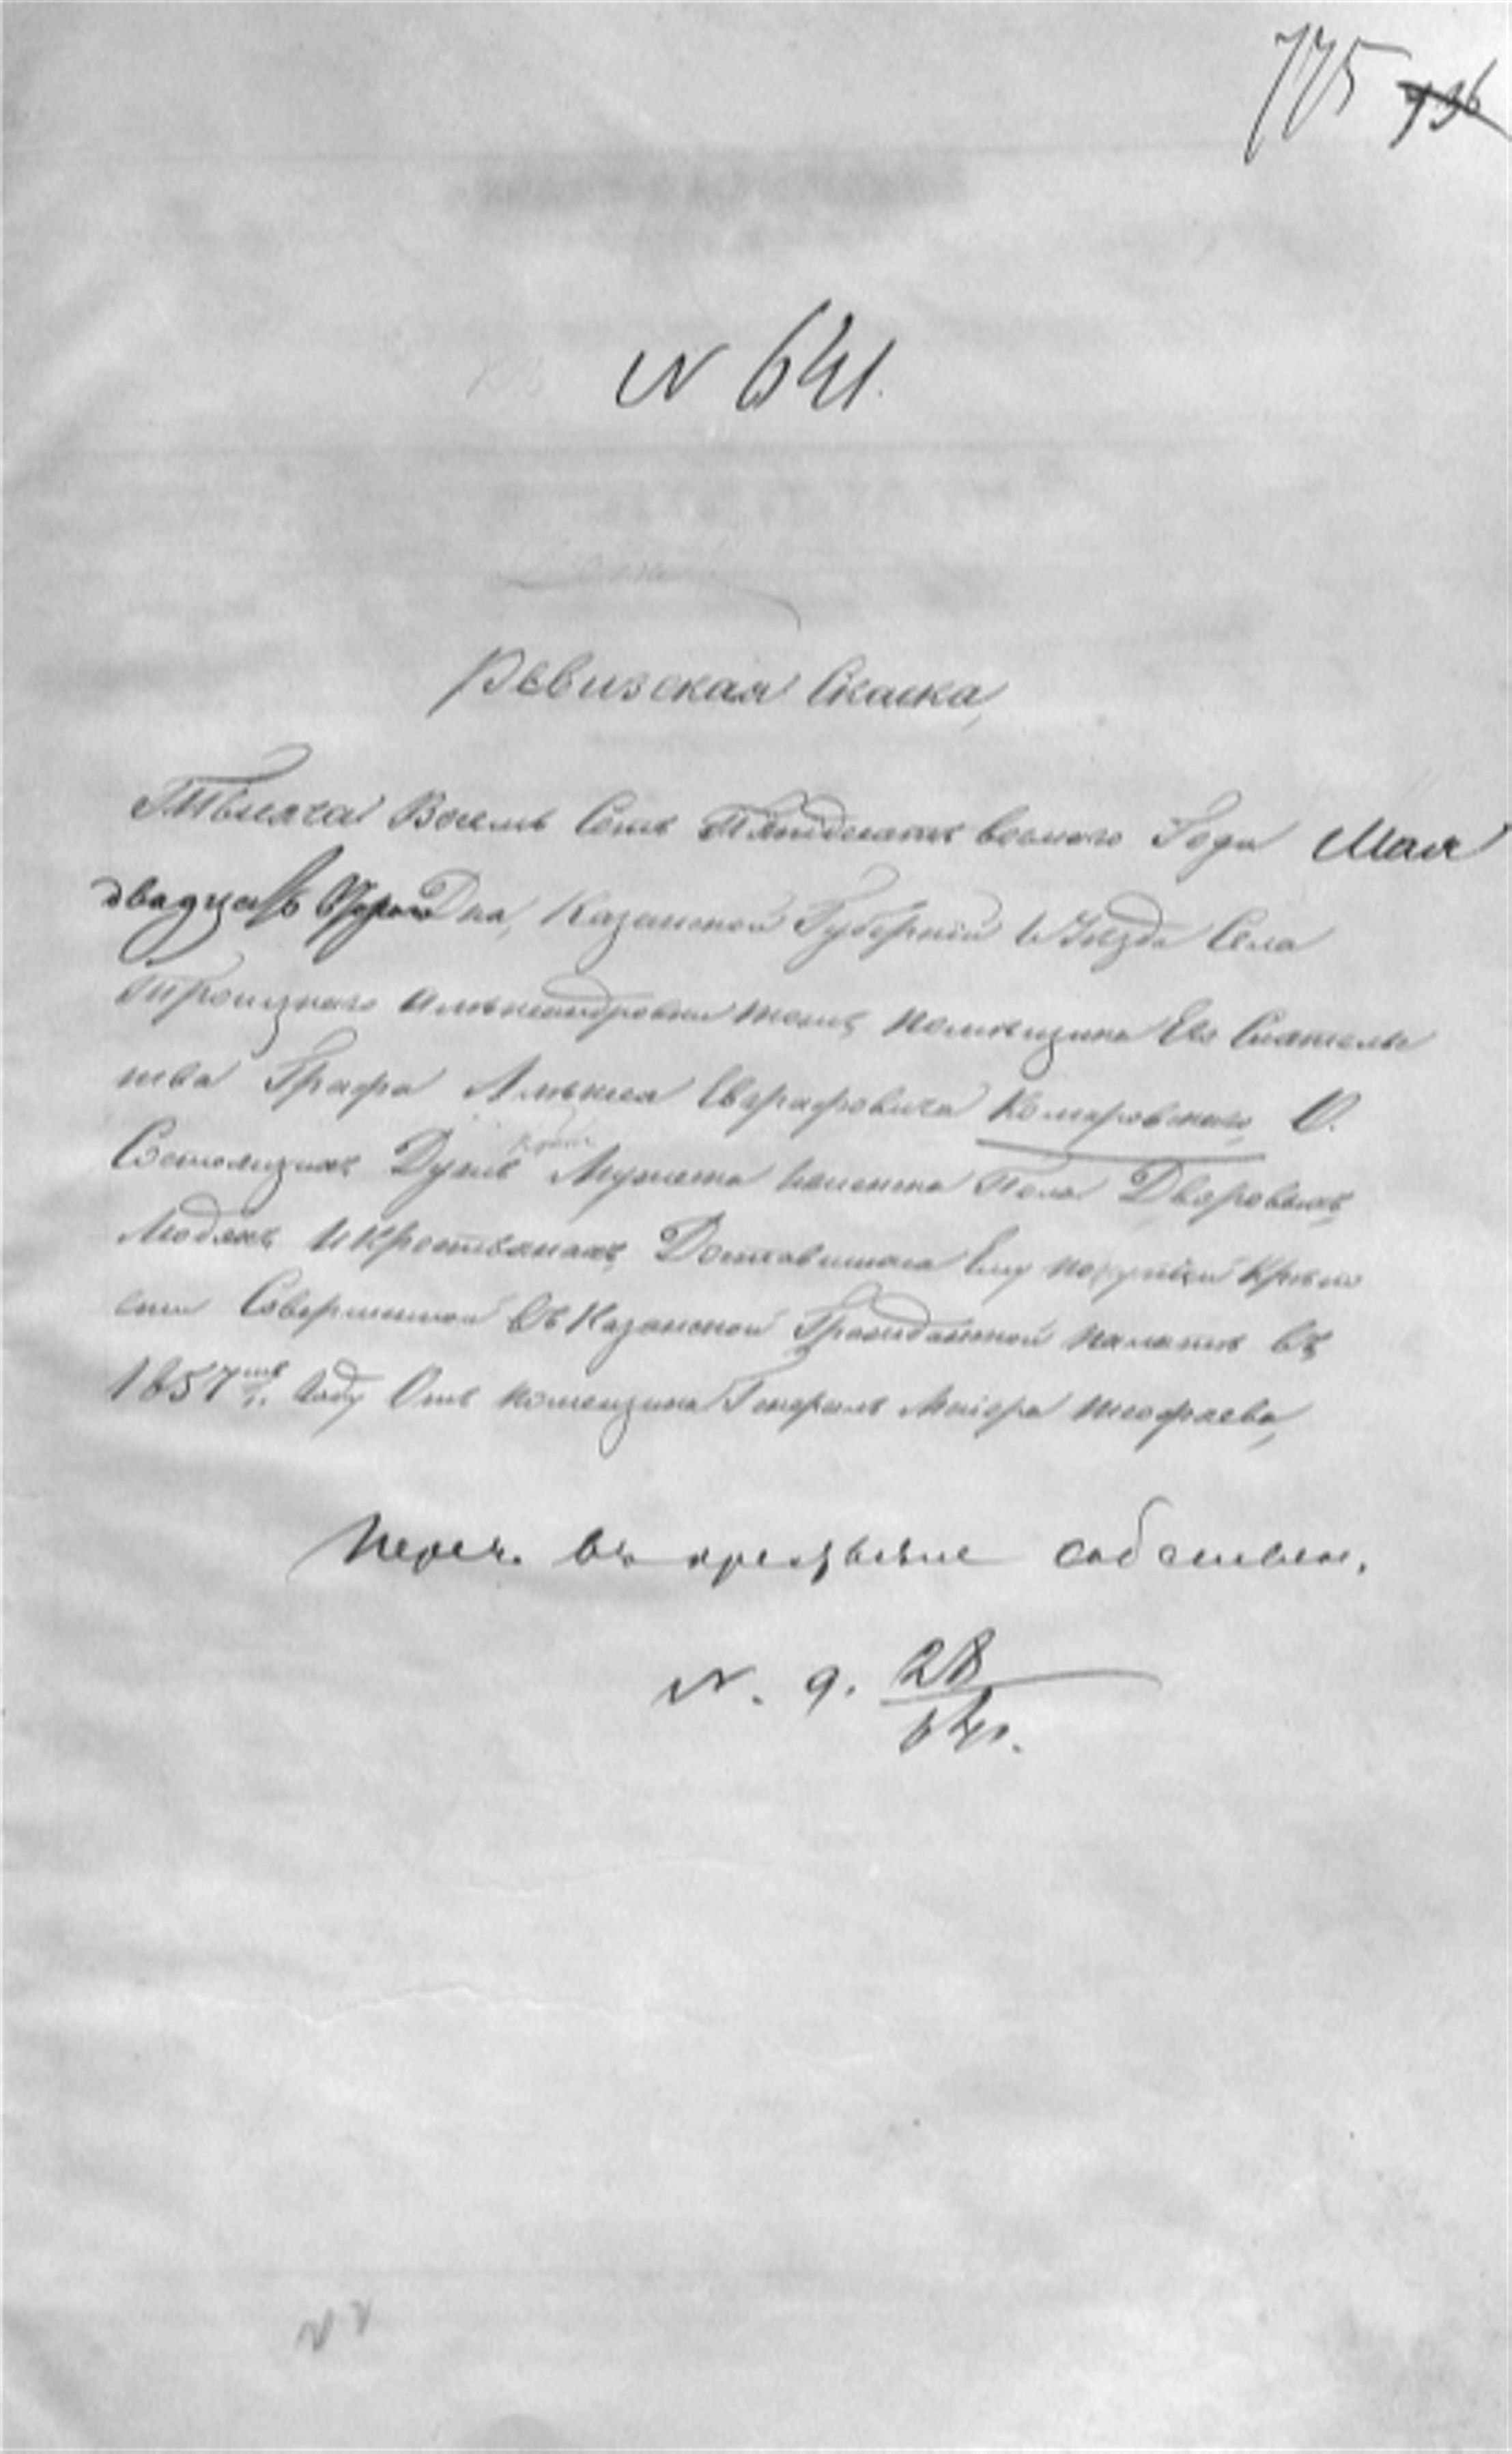 775 936
N 641.
Ревизская Скаска,
Тысяча Восемь Сотъ Пятдесятъ восмого Года Мая
двадцать Втораго Дня, Казанской Губерніи и Уезда Села
Троицкаго помещика Его Сиятельс
тва Графа Алексея Евграфовича Комаровскаго, О.
Состоящихъ Душъ Мужеска Женска Пола Дворовыхъ
Людяхъ и Крестьянахъ, Доставшихся Ему по купчей Крепо
сти Совершенной Въ Казанской Гражданской палате въ
1857мъ Году Отъ помещика Генералъ Маіора
Переч. въ крестьяне собственн.
N. 9. 28
641.